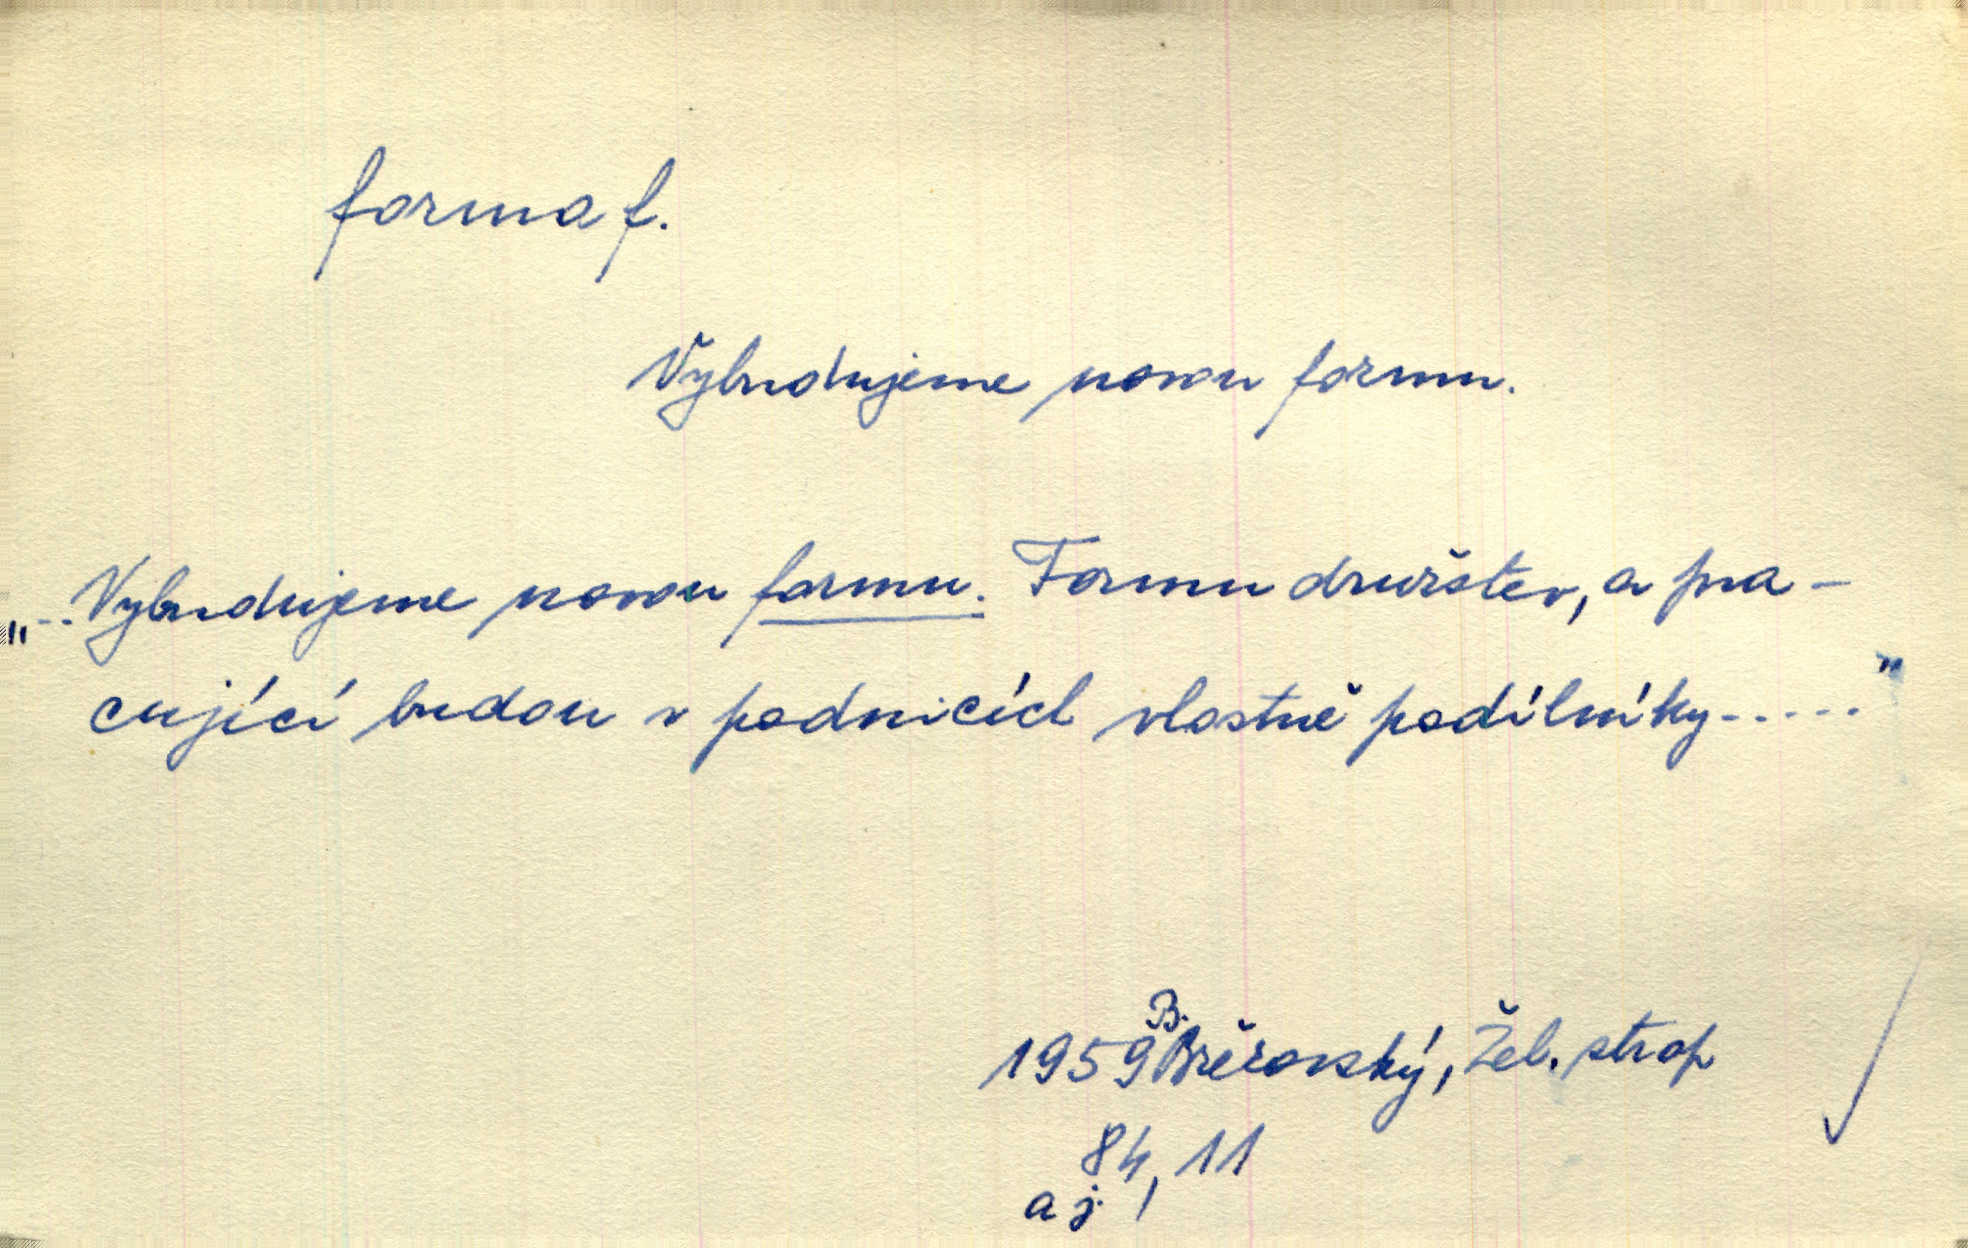 forma f.
Vybudujeme novou formu.
„... Vybudujeme novou formu. Formu družstev, a pra-
cující budou v podnicích vlastně podílníky....."
1959 B. Břěrovský, Žel. strop
84, 11
a j.